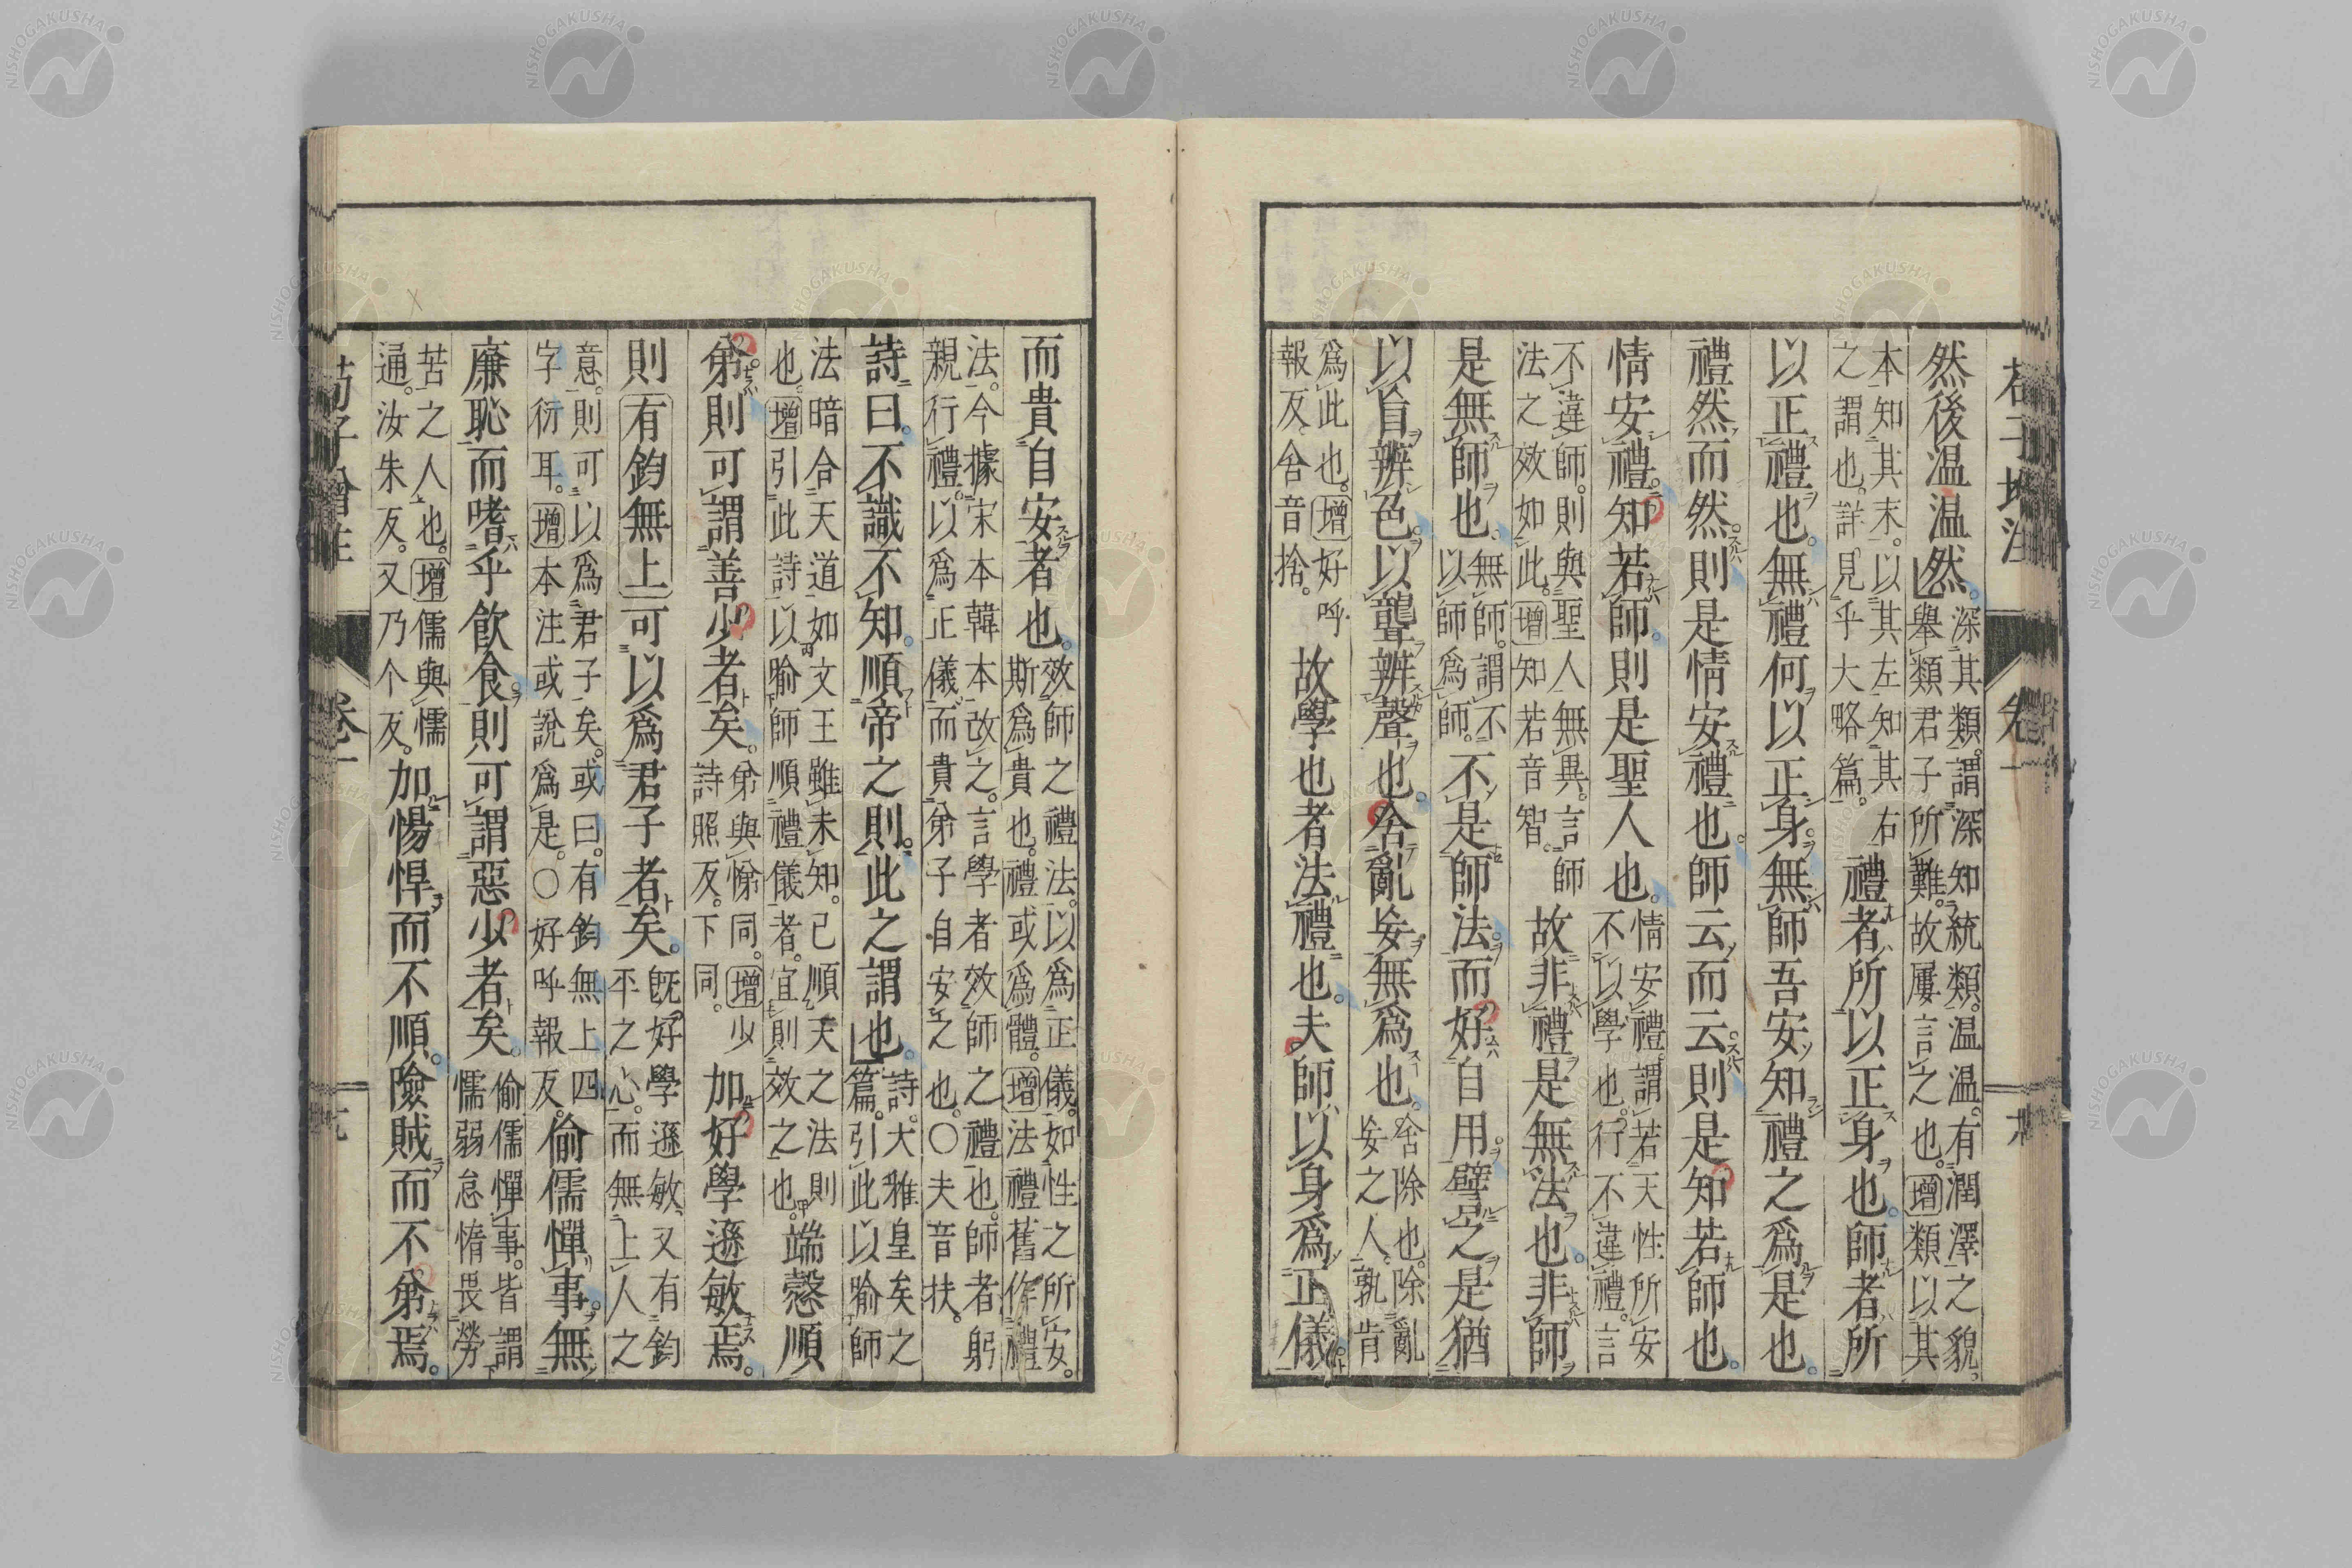 荀子增注
卷一
然後温温然。深其類。謂深知統類。温温。有潤澤之貌。舉類君子所難。故屢言之也。增類以其
本知其末。以其左知其右之謂也。詳見乎大略篇。禮者所以正身也。師者所
以正禮也。無禮何以正身。無師吾安知禮之爲是也。
禮然而然。則是情安禮也。師云而云。則是知若師也。
情安禮。知若師。則是聖人也。情安禮。謂若天性所安不以學也。行不違禮。言
不違師。則與聖人無異。言師法之效如此。增知若音智。故非禮是無法也。非師
是無師也。無師。謂不以師爲師。不是師法。而好自用。譬之是猶
以盲辨色。以聾辨聲也。舍亂妄無爲也。舍除也。除亂妄之人。孰肯
爲此也。增好呼報反。舍音捨。故學也者法禮也。夫師以身爲正儀。
而貴自安者也。效師之禮法。以爲正儀。如性之所安。斯爲貴也。禮或爲體。增法禮舊作禮
法。今據宋本韓本改之。言學者效師之禮也。師者躬親行禮。以爲正儀。而貴弟子自安之也。〇夫音扶。
詩曰。不識不知。順帝之則。此之謂也。詩。大雅皇矣之篇。引此以喻師
法暗合天道如文王雖未知。已順天之法則也。增引此詩以喻師順禮儀者。宜則效之也。端愨順
弟則可謂善少者矣。弟與悌同。增少詩照反。下同。加好學遜敏焉。
則有鈞無上可以爲君子者矣。既好學遜敏、又有鈞平之心。而無上人之
意。則可以爲君子矣。或曰。有鈞無上四字衍耳。增本注或說爲是。〇好呼報反。偷儒憚事。無
廉恥而嗜乎飲食。則可謂惡少者矣。偷儒憚事。皆謂懦弱怠惰畏勞
苦之人也。增儒與懦通。汝朱反。又乃个反。加愓悍而不順。險賊而不弟焉。
荀子增注
卷一